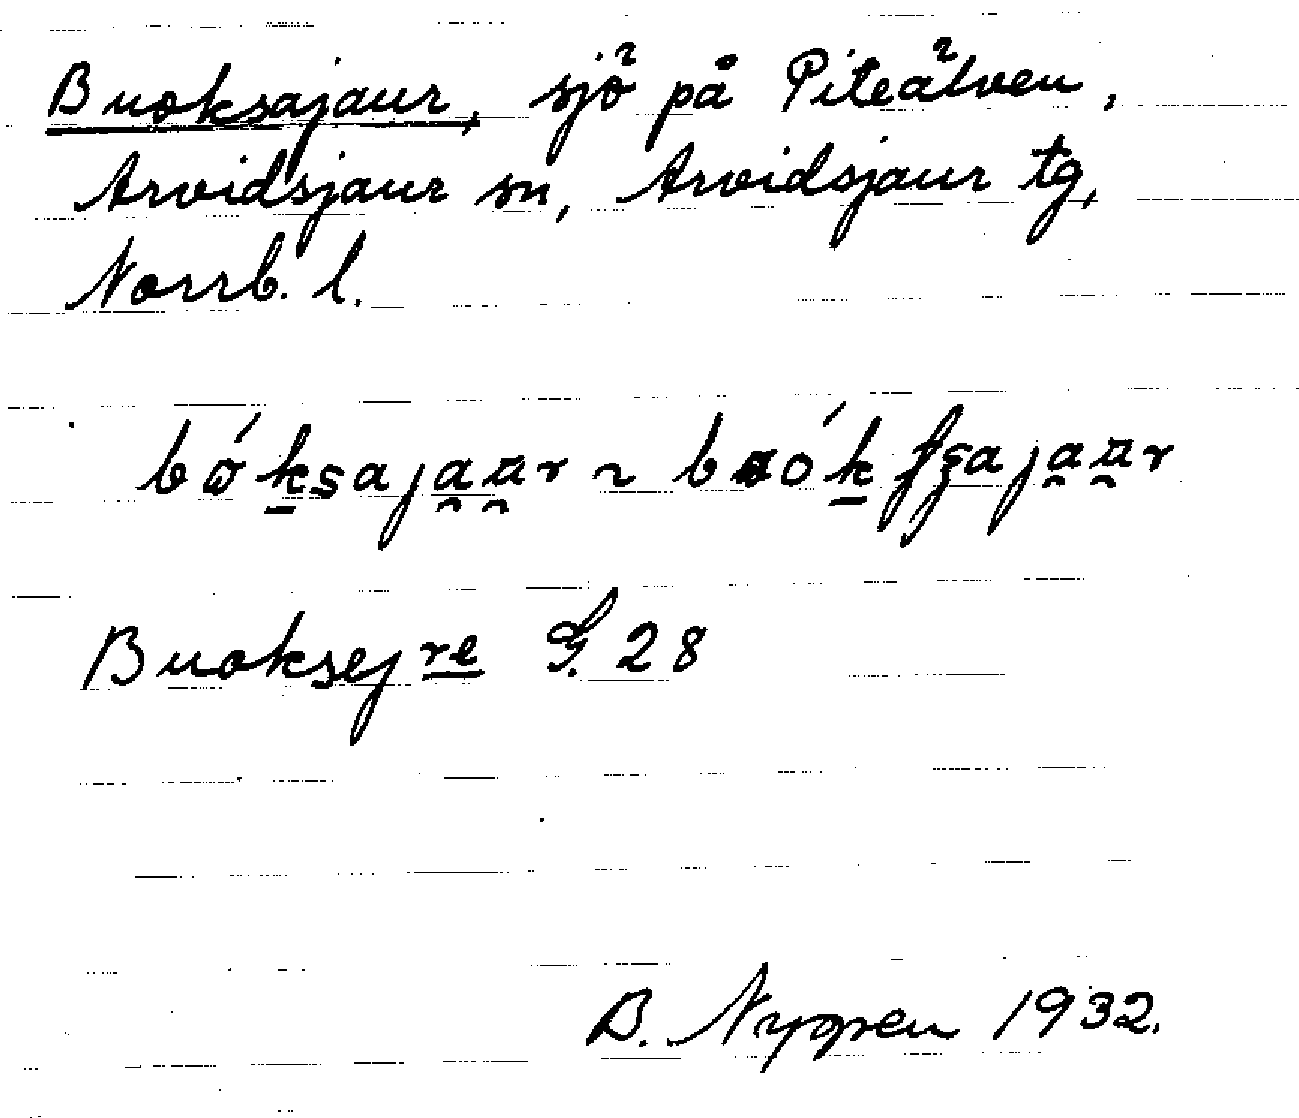 Buoksajaur, sjö på Piteälven,
Arvidsjaur sn, Arvidsjaur tg,
Norrb. l.
Buoksejre G. 28
B. Nygren 1932.